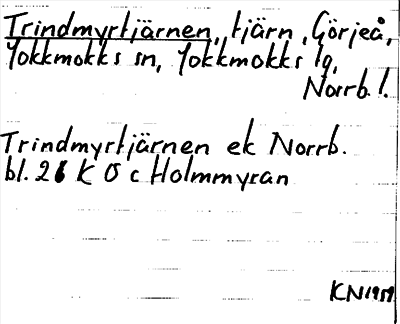 Trindmyrtjärnen, tjärn, Görjeå,
Jokkmokks sn, Jokkmokks lg,
Norrb. l.
Trindmyrtjärnen ek Norrb.
bl. 26 K O c Holmmyran
KN1959